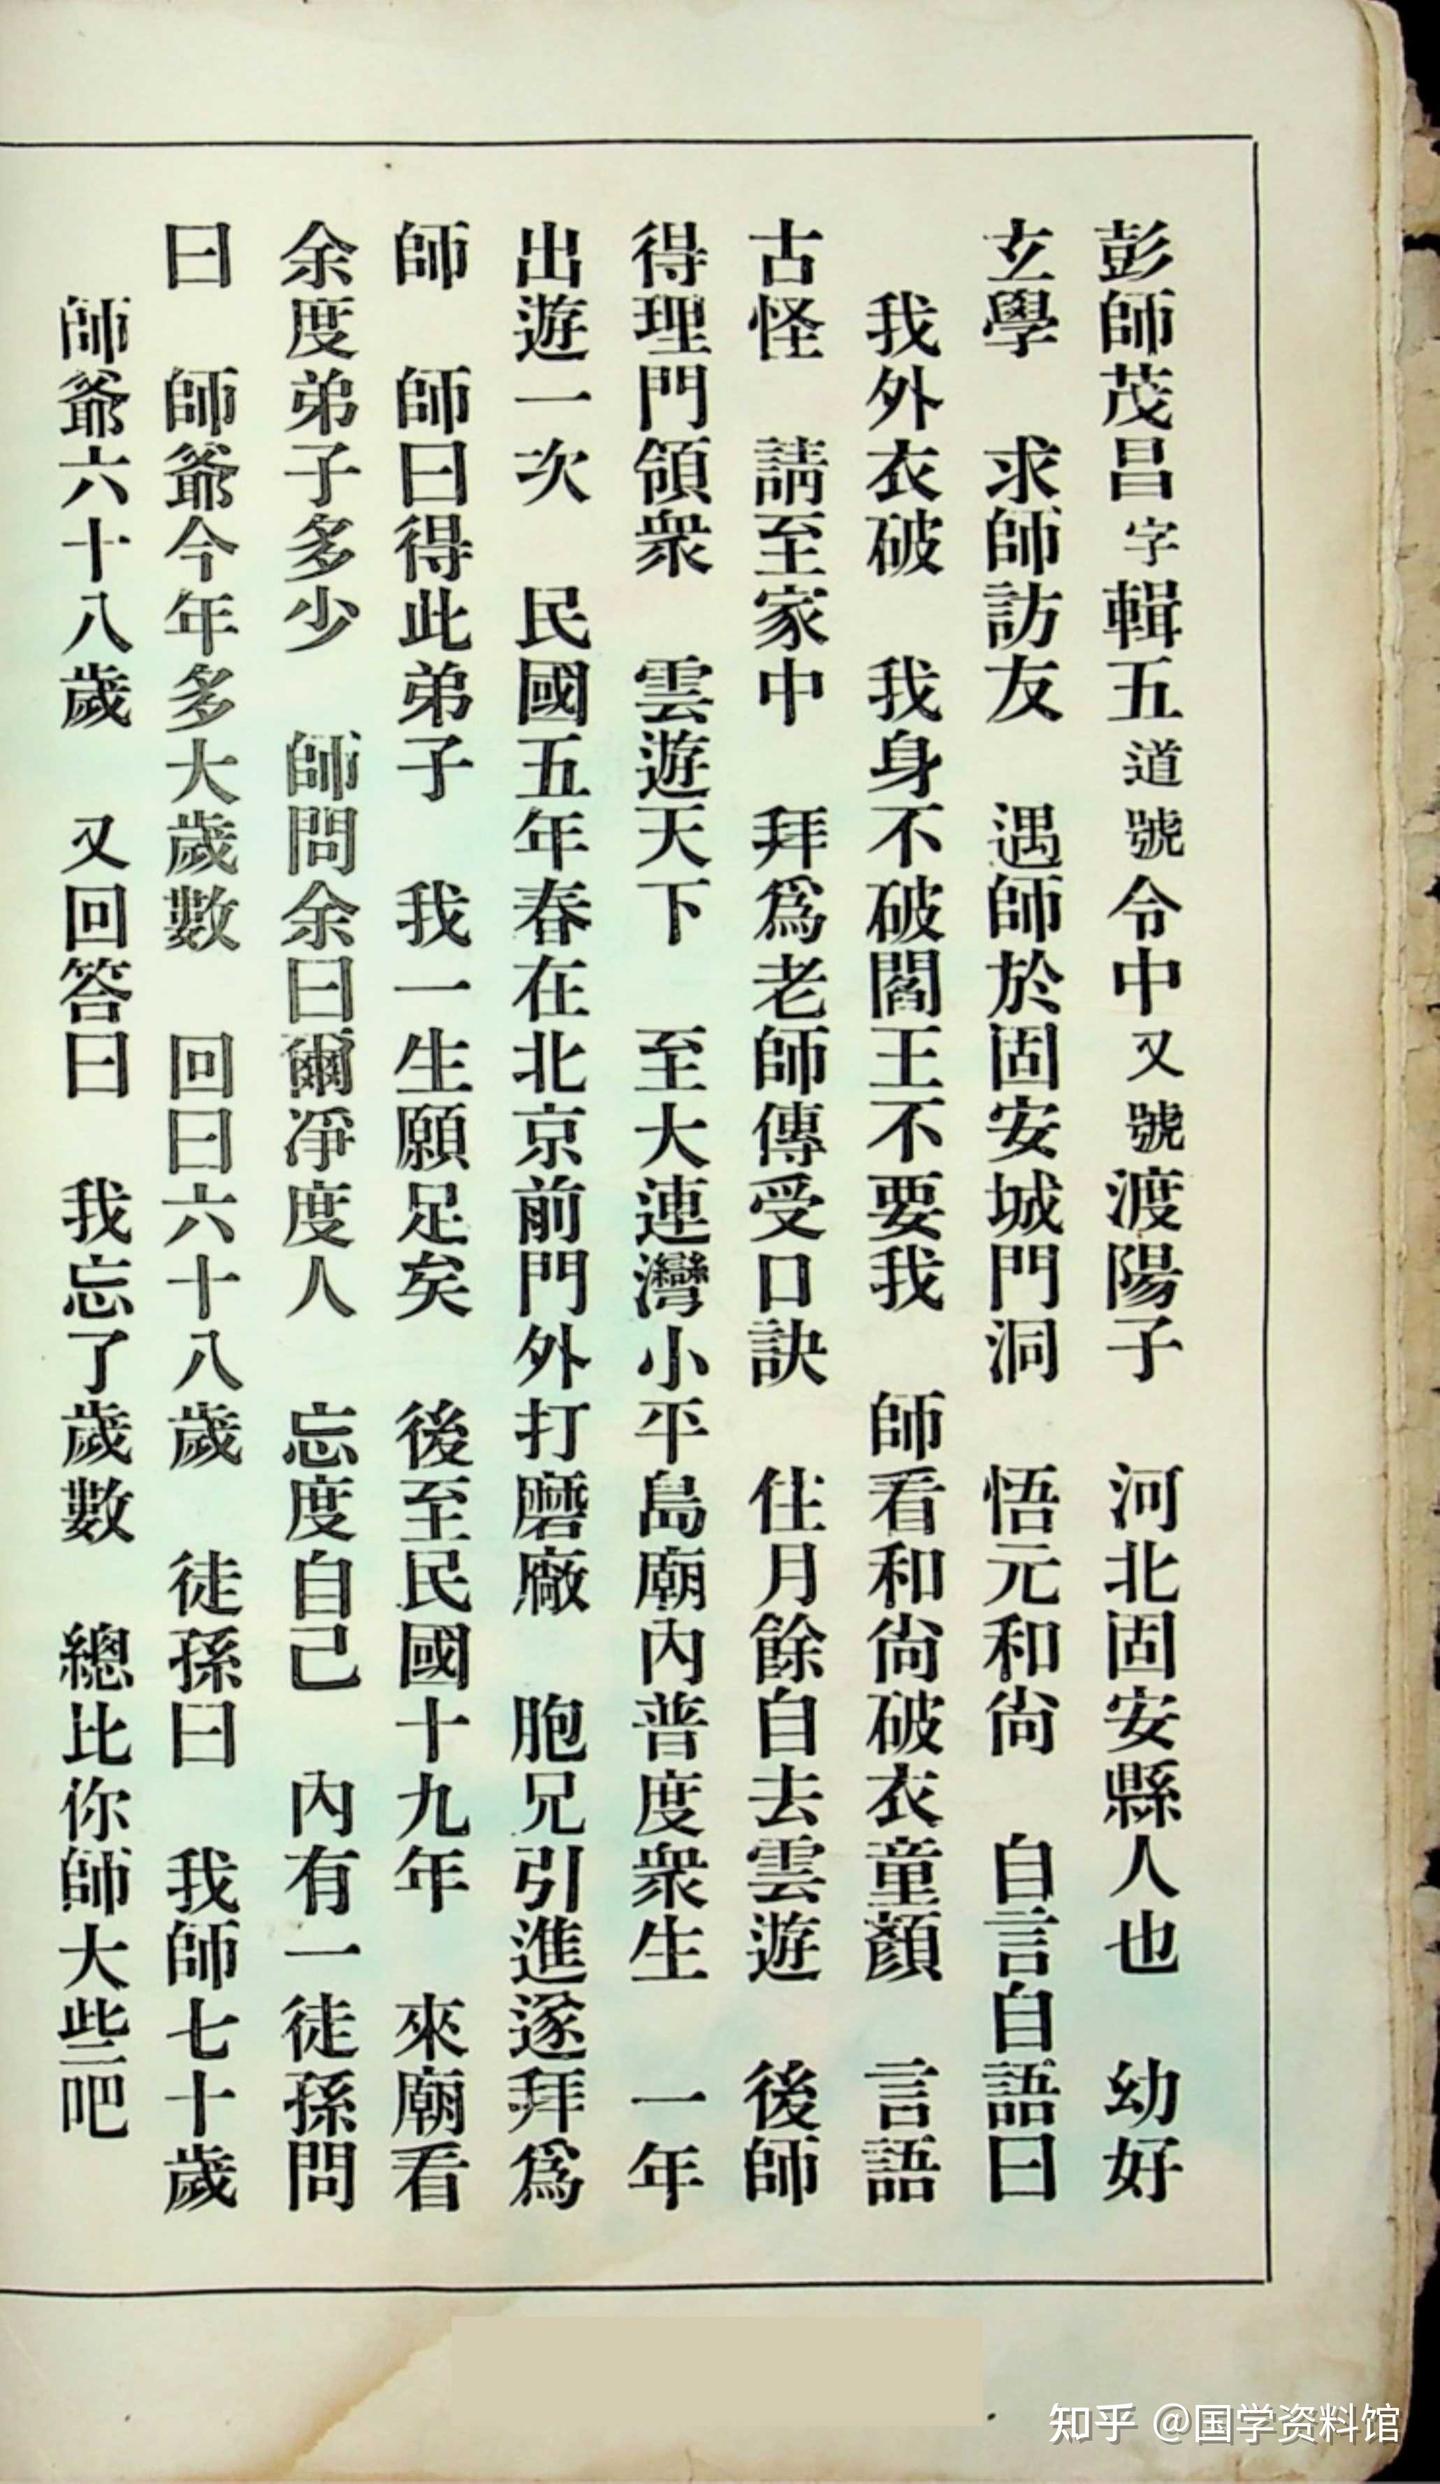 彭師茂昌字輯五道號令中又號渡陽子　河北固安縣人也　幼好
玄學　求師訪友　遇師於固安城門洞　悟元和尙　自言自語曰
我外衣破　我身不破閻王不要我　師看和尙破衣童顏　言語
古怪　請至家中　拜爲老師傳受口訣　住月餘自去雲遊　後師
得理門領衆　雲遊天下　至大連灣小平島廟內普度衆生　一年
出遊一次　民國五年春在北京前門外打磨廠　胞兄引進遂拜爲
師　師曰得此弟子　我一生願足矣　後至民國十九年　來廟看
余度弟子多少　師問余曰爾凈度人　忘度自己　內有一徒孫問
曰　師爺今年多大歲數　回曰六十八歲　徒孫曰　我師七十歲
師爺六十八歲　又回答曰　我忘了歲數　總比你師大些吧
知乎 @国学资料馆